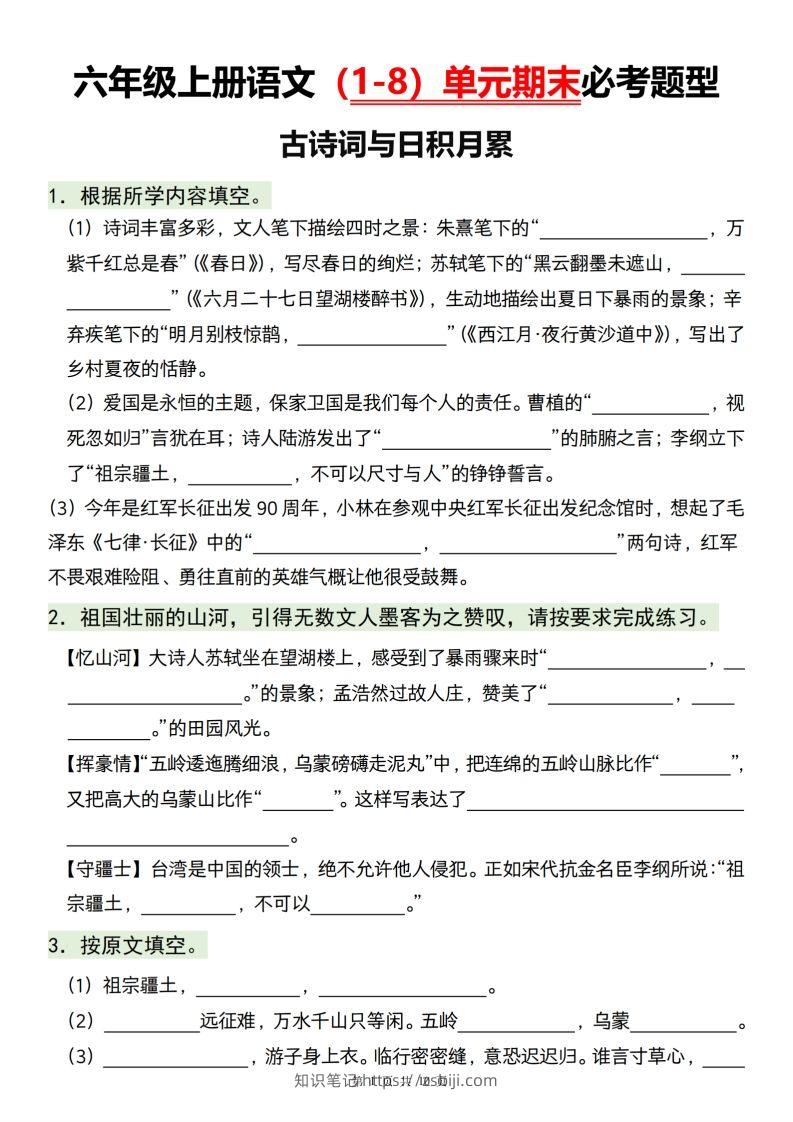 六年级上册语文（1-8）单元期末必考题型
古诗词与日积月累
1．根据所学内容填空。
（1）诗词丰富多彩，文人笔下描绘四时之景：朱熹笔下的“________________，万
紫千红总是春”（《春日》），写尽春日的绚烂；苏轼笔下的“黑云翻墨未遮山，______
__________”（《六月二十七日望湖楼醉书》），生动地描绘出夏日下暴雨的景象；辛
弃疾笔下的“明月别枝惊鹊，______________”（《西江月·夜行黄沙道中》），写出了
乡村夏夜的恬静。
（2）爱国是永恒的主题，保家卫国是我们每个人的责任。曹植的“___________，视
死忽如归”言犹在耳；诗人陆游发出了“________________”的肺腑之言；李纲立下
了“祖宗疆土，__________，不可以尺寸与人”的铮铮誓言。
（3）今年是红军长征出发 90 周年，小林在参观中央红军长征出发纪念馆时，想起了毛
泽东《七律·长征》中的“________________，_________________”两句诗，红军
不畏艰难险阻、勇往直前的英雄气概让他很受鼓舞。
2．祖国壮丽的山河，引得无数文人墨客为之赞叹，请按要求完成练习。
【忆山河】大诗人苏轼坐在望湖楼上，感受到了暴雨骤来时“_______________，__
_________________。”的景象；孟浩然过故人庄，赞美了“____________，____
________。”的田园风光。
【挥豪情】“五岭逶迤腾细浪，乌蒙磅礴走泥丸”中，把连绵的五岭山脉比作“_______”，
又把高大的乌蒙山比作“_______”。这样写表达了__________________________
_____________________。
【守疆士】台湾是中国的领士，绝不允许他人侵犯。正如宋代抗金名臣李纲所说：“祖
宗疆土，_________，不可以_________。”
3．按原文填空。
（1）祖宗疆土，__________，________________。
（2）_________远征难，万水千山只等闲。五岭___________，乌蒙__________。
（3）______________，游子身上衣。临行密密缝，意恐迟迟归。谁言寸草心，____